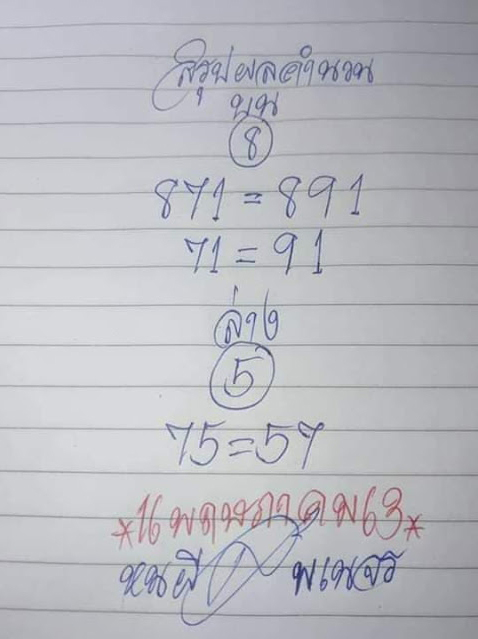 สรุปผลคำนวน
บน
8
871 = 891
71 = 91
ล่าง
5
75 = 57
*16 พฤษภาคม 63*
พเนจร